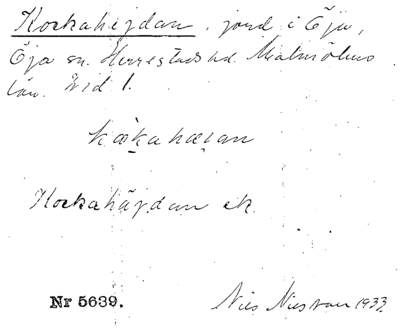 Kockahejdan, jord i Öja,
Öja sn. Herrestads hd. Malmöhus
län. Wid 1.
Kockahäjdan ek.
Nr 5639. Nils Nilsson 1933.